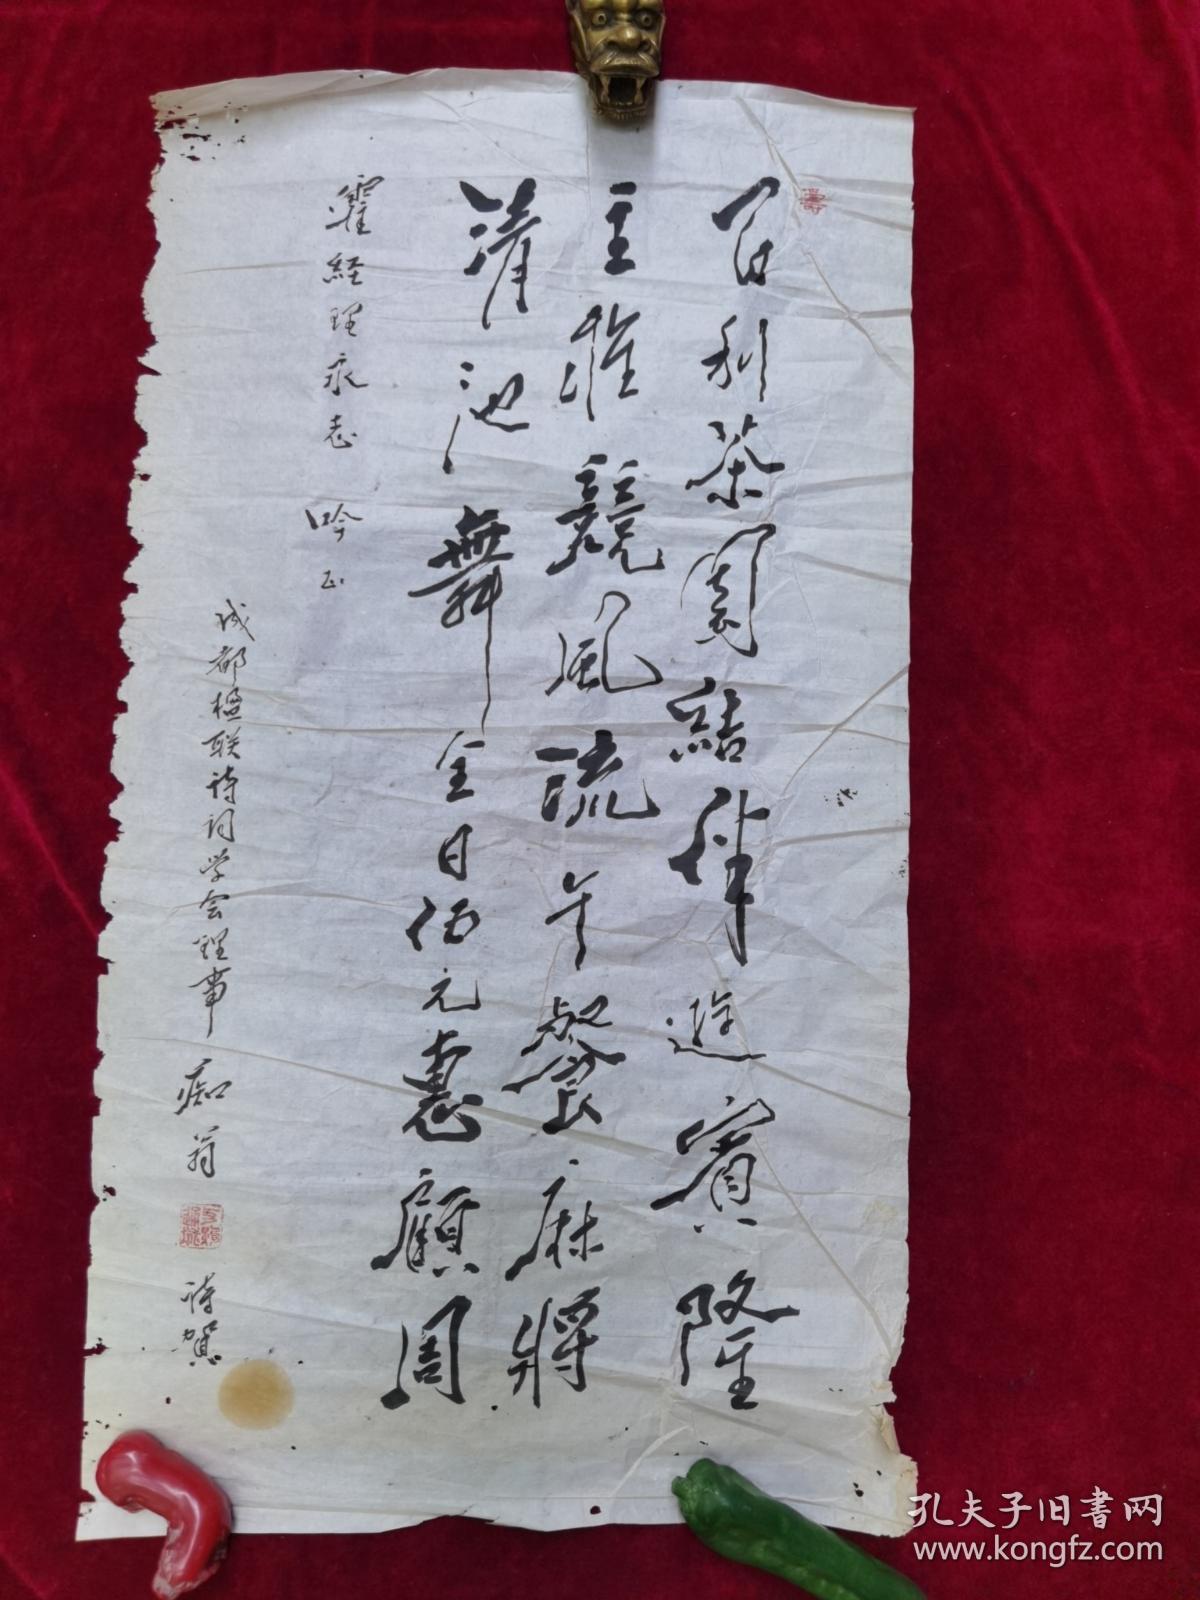 百利茶園結伴遊賓隆
主雅競風流午餐麻將
清池舞全日伍元惠顧周
霍経理永志 吟正
成都楹联诗词学会理事 痴翁 诗贺
孔夫子旧書网
www.kongfz.com